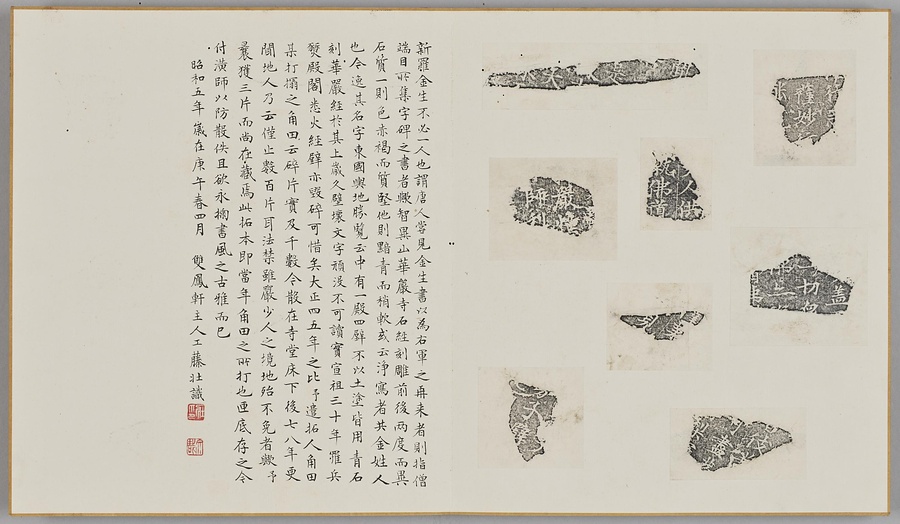 新羅金生不必一人也謂唐人嘗見金生書以為右軍之再来者則指僧
端目所集字碑之書者歟智異山華嚴寺石経刻雕前後兩度而異
石質一則色赤褐而質堅他則黯青而稍軟或云浄寫者共金姓人
也今逸其名字東國輿地勝覽云中有一殿四壁不以土塗皆用青石
刻華嚴経於其上歲久壁壞文字頑没不可讀實宣祖三十年罹兵
燹殿閣悉火経壁亦毀碎可惜矣大正四五年之比予遣拓人角田
某打搨之角田云碎片實及千數今散在寺堂床下後七八年更
聞地人乃云僅止數百片耳法禁雖嚴少人之境地殆不免者歟予
曩獲三片而尚在蔵焉此拓本即當年角田之所打也匣底存之今
付潢師以防散佚且欲永摛書風之古雅而已
昭和五年歲在庚午春四月 雙鳳軒主人工藤壮識
護妙
人
佛
切
盖